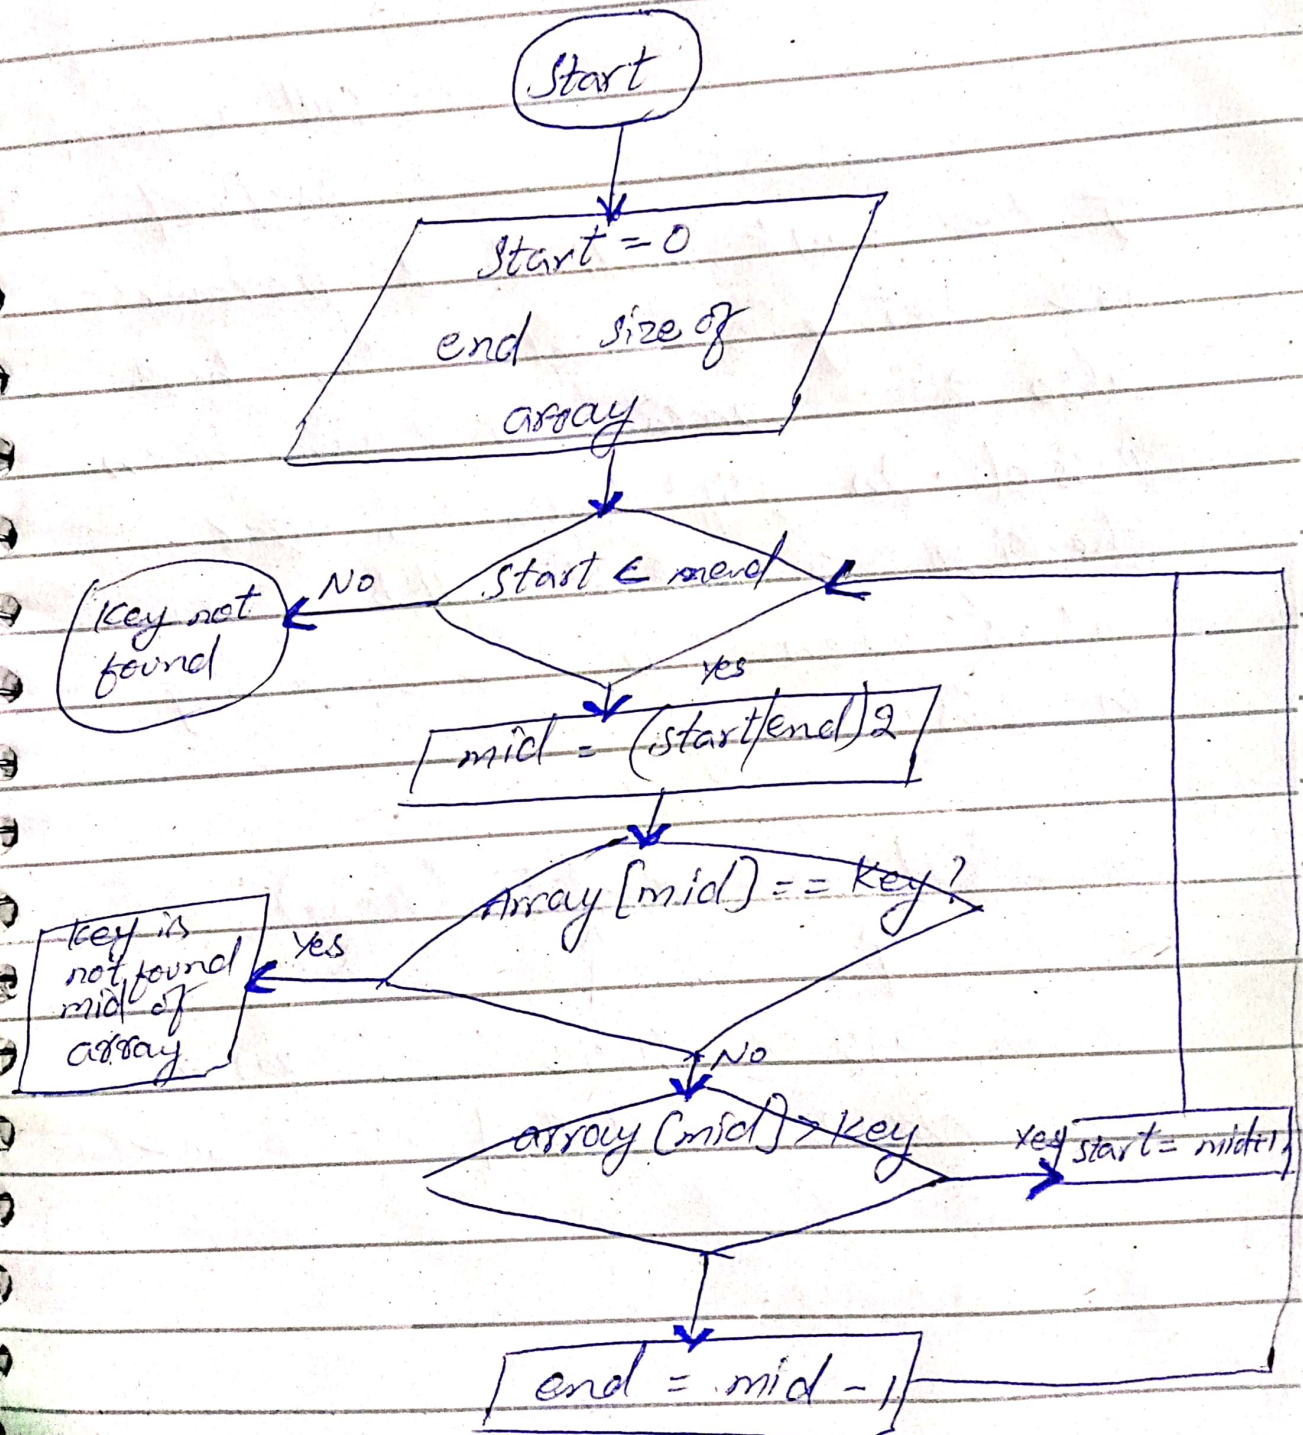 Start
Start = 0
end size of
array
Start ≤ mend
No
Key not
found
Yes
mid = (start/end)2
Array [mid] == Key?
Yes
Key is
not found
mid of
array
No
array [mid] > Key
Yes
start = mid+1
end = mid - 1